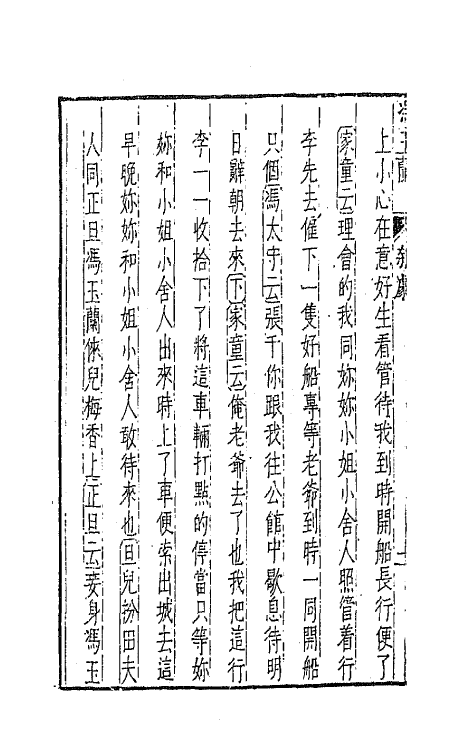 馮玉蘭 雜劇
上小心在意好生看管待我到時開船長行便了
家童云理會的我同妳妳小姐小舍人照管着行
李先去僱下一隻好船專等老爺到時一同開船
只個馮太守云張千你跟我往公館中歇息待明
日辭朝去來下家童云俺老爺去了也我把這行
李一一收拾下了將這車輛打點的停當只等妳
妳和小姐小舍人出來時上了車便索出城去這
早晚妳妳和小姐小舍人敢待來也旦兒扮田夫
人同正旦馮玉蘭倈兒梅香上正旦云妾身馮玉